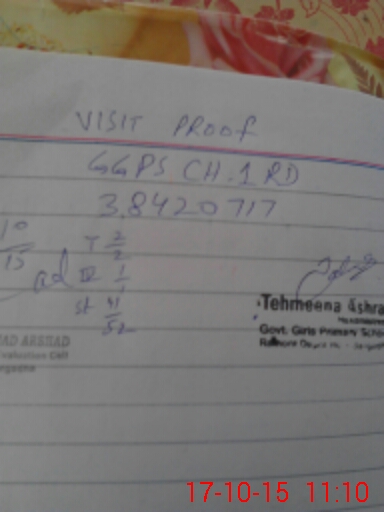 VISIT PROOF
GGPS CH.1 RD
3,8420717
10
15
T 2/2
1/1
st 41/52
AD ARSHAD
Evaluation Cell
Tehmeena Ashra
Govt. Girls Primary Scho
17-10-15 11:10